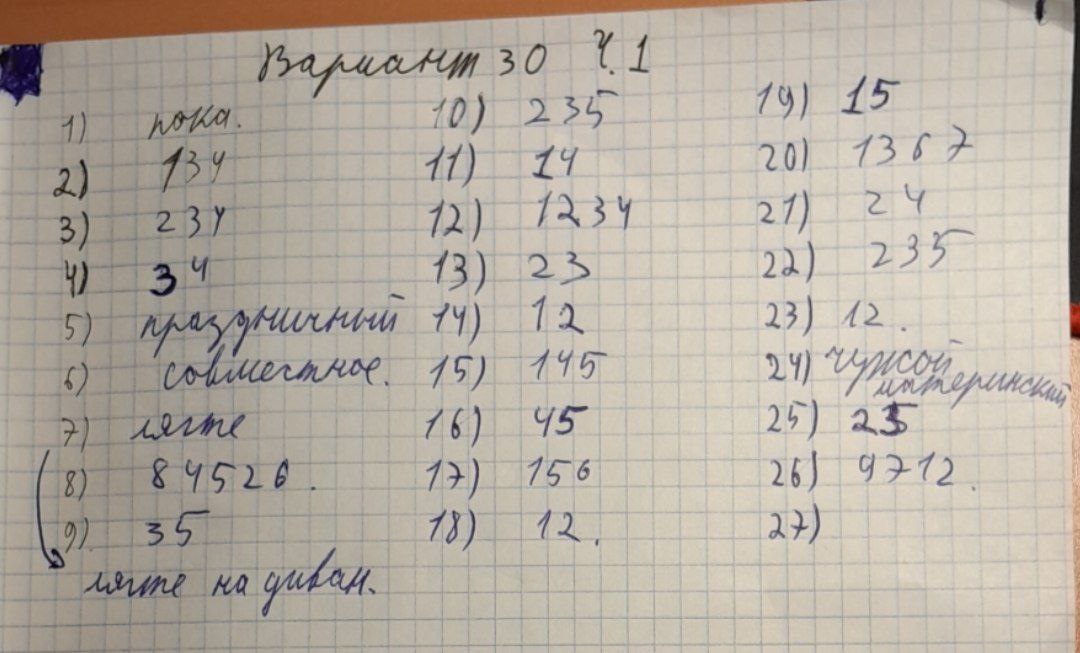 Вариант 30 Ч.1
1) пока.
2) 134
3) 234
4) 34
5) праздничный
6) совместное.
7) лягте
8) 84526.
9) 35
лягте на диван.
10) 235
11) 14
12) 1234
13) 23
14) 12
15) 145
16) 45
17) 156
18) 12.
19) 15
20) 1367
21) 24
22) 235
23) 12.
24) чужой
материнский
25) 25
26) 9712.
27)